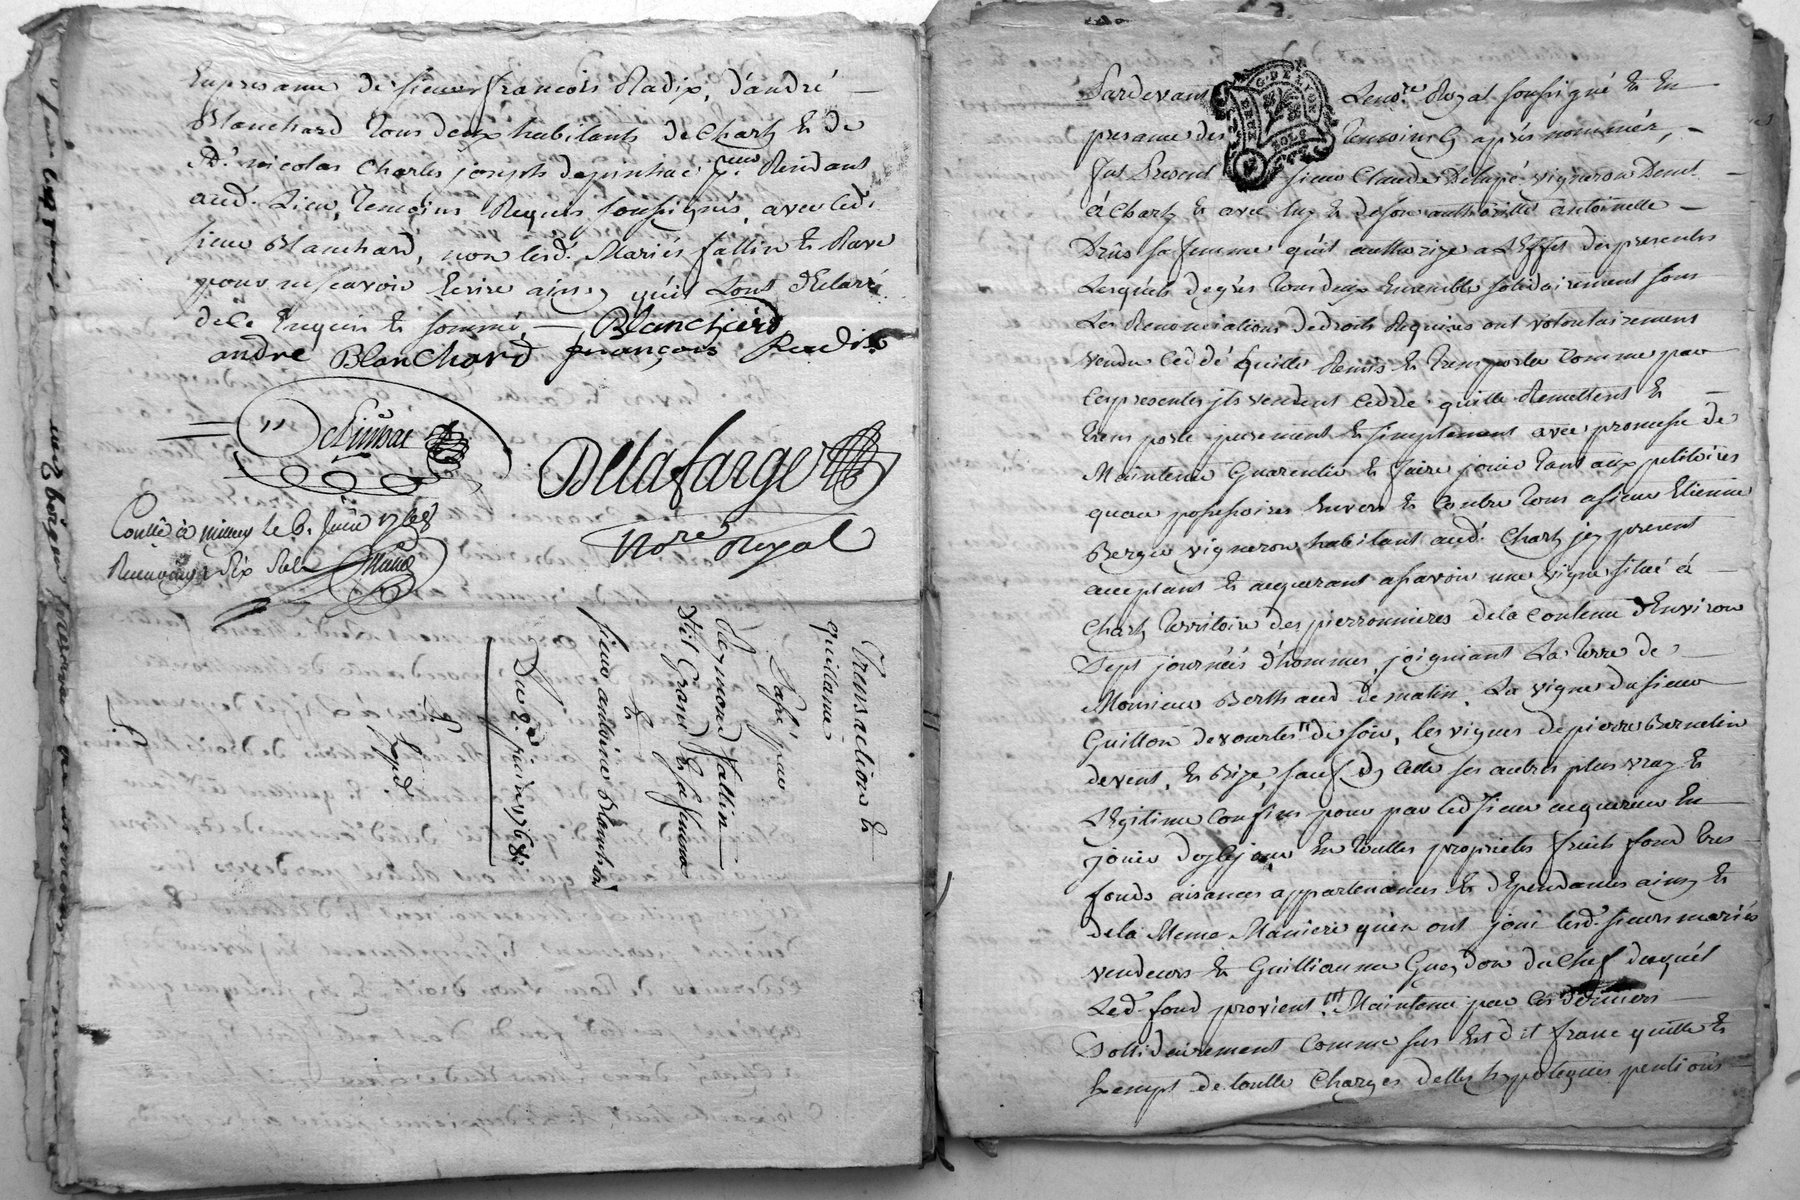 En presence de sieur françois Radix, d'andré
Blanchard Tous deux habitants de Charly & de
Sr. nicolas Charles joseph depinhac jeune Residant
aud. Lieu, Temoins Requis soussignés, avec led.
sieur Blanchard, non lesd. Mariés fallin & Rave
pour ne scavoir Ecrire ainsy qu'ils L'ont déclaré
de ce Enquis & sommé, Blanchard
andré Blanchard françois Radix
Delafarge
Nore. Royal
Conllé à millery le 6. Juin 1768
Recu Six
Transaction &
quittance
Passé par
Reymond fallin
dit Grand & sa femme
&
sieur antoine Blanchard
Du 2e. juin 1768.
Exped.
G. DE LYON
SOLS
Pardevant Le nore. Royal soussigné & En
presence des Temoins Cy après nommés,
fut Present sieur Claude Delapé vigneron Demt.
à Charly & avec luy & de son authorité antoinette
Drûs sa femme qu'il authorize a L'Effet des presentes
Lesquels de grés Tous deux Ensemble solidairement sous
Les Renonciations de droits Requises ont volontairement
vendu Ceddé quitté Remis & Transporté Comme par
Ces presentes ils vendent Cedde quitte Remettent &
transporte purement & simplement avec promesse de
Maintenir Guarentir & faire jouir tant aux petitoires
qu'au possessoires Envers & Contre Tous a sieur Etienne
Berger vigneron habitant aud. Charly icy present
acceptant & acquerant asavoir une vigne située à
Charly Territoire des pierronnieres de la Contenue d'Environ
Sept journées d'hommes, joignant La Terre de
Monsieur Berthaud de matin. La vigne du sieur
Guillon de vourles de soir, les vignes de pierre Bernelin
de vent, & Bize, sauf dy Celle ses autres plus vray &
Légitime Confins pour par led sieur acquereur En
jouir des ce jour En Toutes proprietes fruits fond tres
fonds aisances appartenances & dépendantes ainsy &
de la Meme Maniere qu'en ont joui lesd. sieurs mariés
vendeurs & Guillaume Gueydon du Chef duquél
Led. fond provient. Maintenir par Ces derniers
Solidairement Comme sus Est dit franc quitte &
Exempt de toutte Charges dettes hypoteques pentions